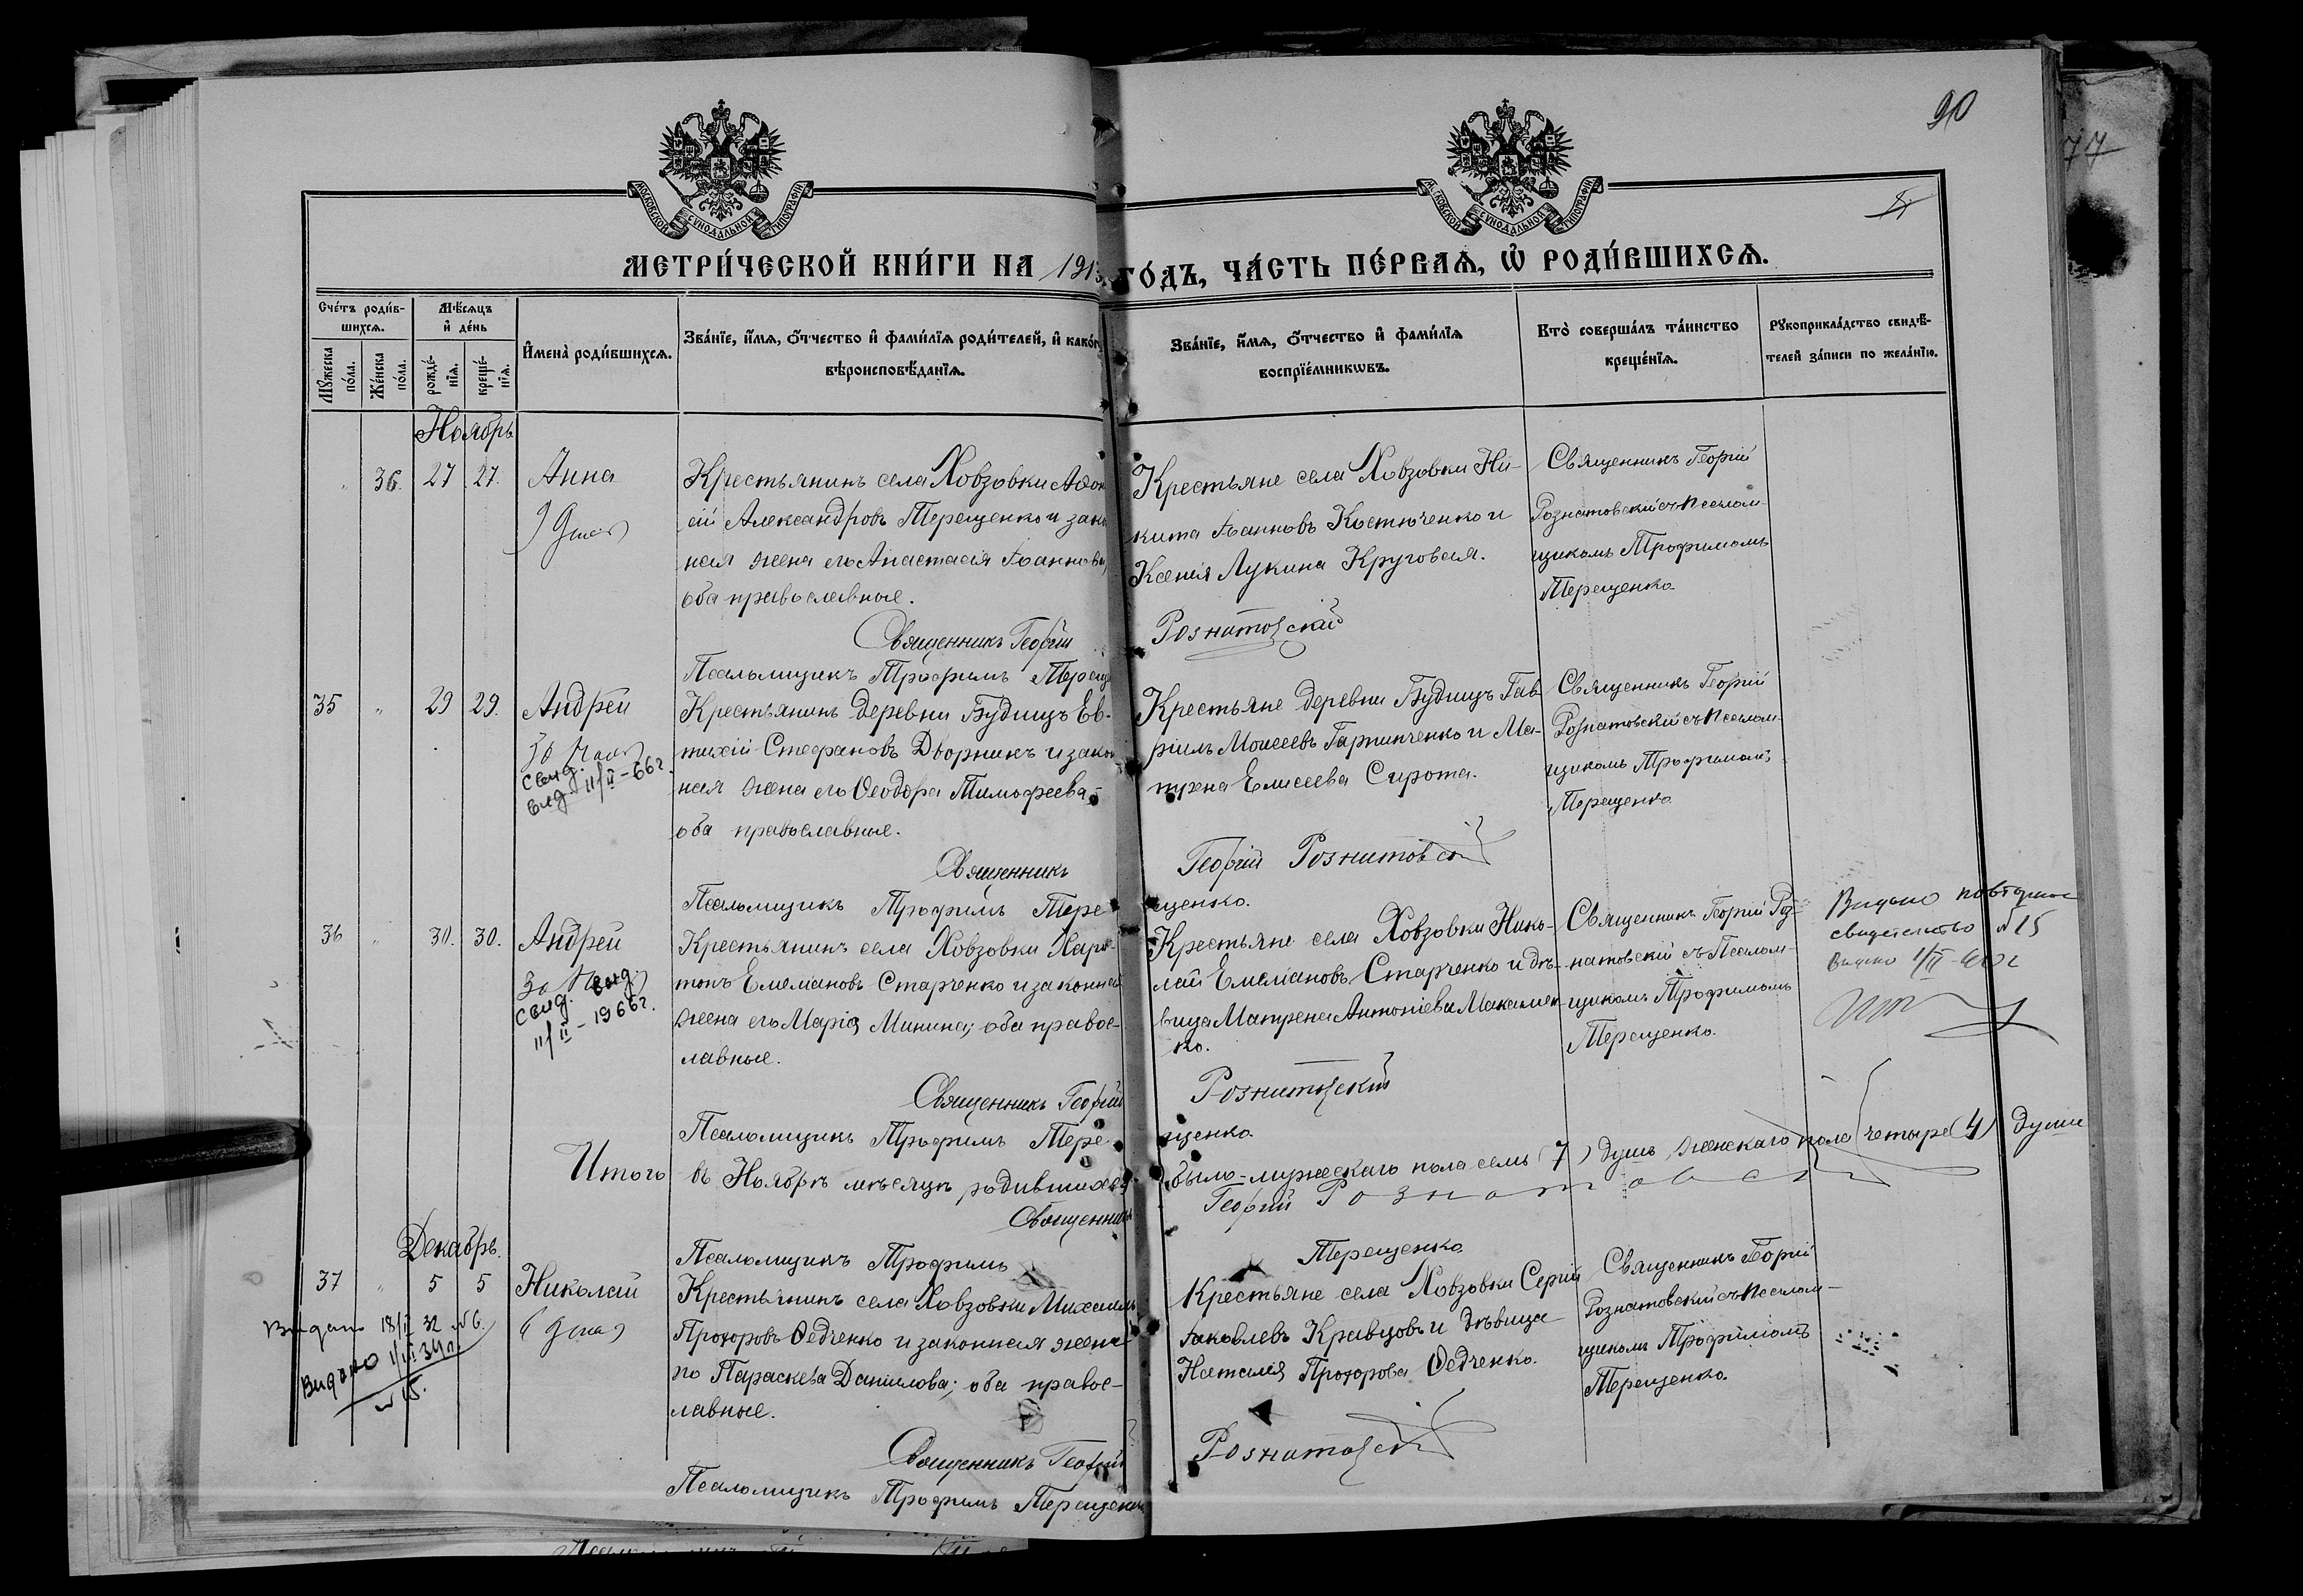 90
77
МОСКОВСКОЙ СѴНОДАЛЬНОЙ ТИПОГРАФІИ
МОСКОВСКОЙ СѴНОДАЛЬНОЙ ТИПОГРАФІИ
МЕТРИ́ЧЕСКОЙ КНИ́ГИ НА 1913 ГО́ДЪ, ЧА́СТЬ ПЕ́РВАѦ, Ѡ҆ РОДИ́ВШИХСѦ.
Сче́тъ роди́в-
шихсѧ.
Мꙋ́жеска
по́ла.
Же́нска
по́ла.
Мѣ́сѧцъ
и҆ де́нь
рожде́-
нїѧ.
креще́-
нїѧ.
И҆мена̀ роди́вшихсѧ.
Зва́нїе, и҆́мѧ, ѻ҆́тчество и҆ фами́лїѧ роди́телей, и҆ како́г
вѣроисповѣ́данїѧ.
Зва́нїе, и҆́мѧ, ѻ҆́тчество и҆ фами́лїѧ
воспрїе́мникѡвъ.
Кто̀ соверша́лъ та́инство
креще́нїѧ.
Рꙋкоприкла́дство свидѣ́-
телей за́писи по жела́нїю.
Ноябрь
" 36. 27 27. Анна
Крестьянинъ села Ховзовки Афон
сій Александровъ Терещенко и закон
ная жена его Анастасія Іоаннова,
оба православные.
Священникъ Георгій
Псаломщикъ Трофимъ Терещ
Крестьяне села Ховзовки Ни-
кита Іоанновъ Костюченко и
Ксенія Лукина Круговая.
Рознатовскій
Священникъ Георгій
Рознатовскій съ Псалом-
щикомъ Трофимомъ
Терещенко.
35 " 29 29. Андрей
свид.
выд. 11/II-66г.
Крестьянинъ деревни Будищъ Ев-
тихій Стефановъ Дворникъ и закон
ная жена его Ѳеодора Тимофеева,-
оба православные.
Священникъ
Псаломщикъ Трофимъ Тере
Крестьяне деревни Будищъ Гав-
ріилъ Моисеевъ Гарпинченко и Ма-
трена Елисеева Сирота.
Георгій Рознатовскій
щенко.
Священникъ Георгій
Рознатовскій съ Псалом-
щикомъ Трофимомъ
Терещенко
36 " 30. 30. Андрей
свид. выд.
11/II-1966г.
Крестьянинъ села Ховзовки Хари-
тонъ Емеліановъ Старченко и законная
жена его Марія Минина; оба правос-
лавные.
Священникъ Георгій
Псаломщикъ Трофимъ Тере
Крестьяне села Ховзовки Нико-
лай Емеліановъ Старченко и дѣ-
вица Матрена Антоніева Максимен-
ко.
Рознатовскій
щенко.
Священникъ Георгій Роз-
натовскій съ Псалом-
щикомъ Трофимомъ
Терещенко.
Видано повторне
свидетельство №15
Итого въ Ноябрѣ мѣсяцѣ родившихся было - мужескаго пола семь (7) душъ, женскаго пола четыре (4) души
Священникъ Георгій Рознатовскій
Псаломщикъ Трофимъ Терещенко
Декабрь.
37 " 5 5 Николай
Видано 18/II 32 №6.
Видано 1/III 34г.
№15.
Крестьянинъ села Ховзовки Михаилъ
Прохоровъ Ѳедченко и законная жена
го Параскева Даниилова; оба правос-
лавные.
Священникъ Георгій
Псаломщикъ Трофимъ Терещенко
Крестьяне села Ховзовки Сергій
Іаковлевъ Кравцовъ и дѣвица
Наталія Прохорова Ѳедченко.
Рознатовскій
Священникъ Георгій
Рознатовскій съ Псалом-
щикомъ Трофимомъ
Терещенко.